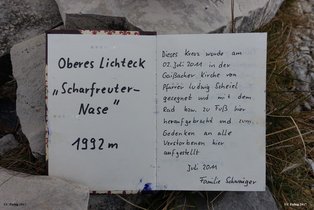 Oberes Lichteck
„Scharfreuter-
Nase"
1992 m
Dieses Kreuz wurde am
02. Juli 2011 in der
Gaißacher Kirche von
Pfarrer Ludwig Scheiel
gesegnet und mit dem
Rad bzw. zu Fuß hier
heraufgebracht und zum
Gedenken an alle
Verstorbenen hier
aufgestellt
Juli 2011
Familie